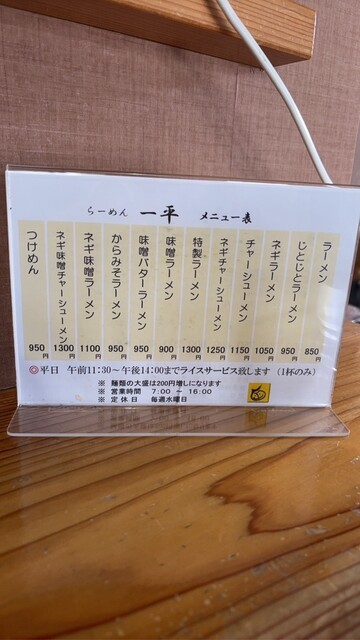 らーめん 一平 メニュー表
ラーメン 850円
じとじとラーメン 950円
ネギラーメン 1050円
チャーシューメン 1150円
ネギチャーシューメン 1250円
特製ラーメン 1300円
味噌ラーメン 900円
味噌バターラーメン 950円
からみそラーメン 950円
ネギ味噌ラーメン 1100円
ネギ味噌チャーシューメン 1300円
つけめん 950円
◎平日 午前11:30～午後14:00までライスサービス致します (1杯のみ)
※ 麺類の大盛は200円増しになります
※ 営業時間 7:00 ～ 16:00
※ 定休日 毎週水曜日